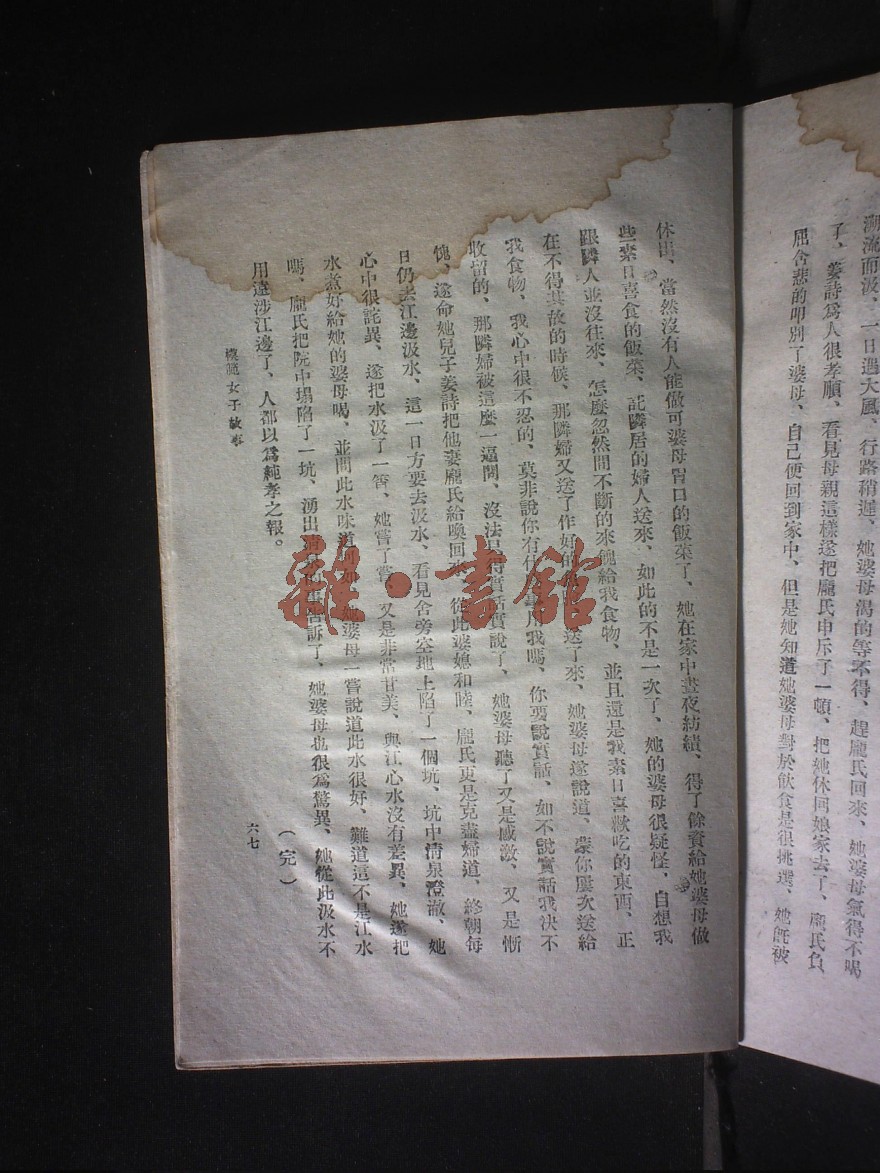 溯流而汲、一日遇大風、行路稍遲、她婆母渴的等不得、趕龐氏回來、她婆母氣得不喝
了、姜詩爲人很孝順、看見母親這樣遂把龐氏申斥了一頓、把她休回娘家去了、龐氏負
屈含悲的叩別了婆母、自己便回到家中、但是她知道她婆母對於飲食是很挑選、她旣被
休出、當然沒有人能做可婆母胃口的飯菜了、她在家中晝夜紡績、得了餘資給她婆母做
些素日喜食的飯菜、託隣居的婦人送來、如此的不是一次了、她的婆母很疑怪、自想我
跟隣人並沒往來、怎麼忽然間不斷的來餽給我食物、並且還是我素日喜歡吃的東西、正
在不得其故的時候、那隣婦又送了作好的送了來、她婆母遂說道、蒙你屢次送給
我食物、我心中很不忍的、莫非說你有什用我嗎、你要說實話、如不說實話我決不
收留的、那隣婦被這麼一逼問、沒法只得實話實說了、她婆母聽了又是感激、又是慚
愧、遂命她兒子姜詩把他妻龐氏給喚回來、從此婆媳和睦、龐氏更是克盡婦道、終朝每
日仍去江邊汲水、這一日方要去汲水、看見舍旁空地上陷了一個坑、坑中清泉澄澈、她
心中很詫異、遂把水汲了一筲、她嘗了嘗、又是非常甘美、與江心水沒有差異、她遂把
水煮好給她的婆母喝、並問此水味道何如、她婆母一嘗說道此水很好、難道這不是江水
嗎、龐氏把院中塌陷了一坑、湧出清泉的事告訴了、她婆母也很爲驚異、她從此汲水不
用遠涉江邊了、人都以爲純孝之報。
（完）
模範女子故事
六七
雜·書館